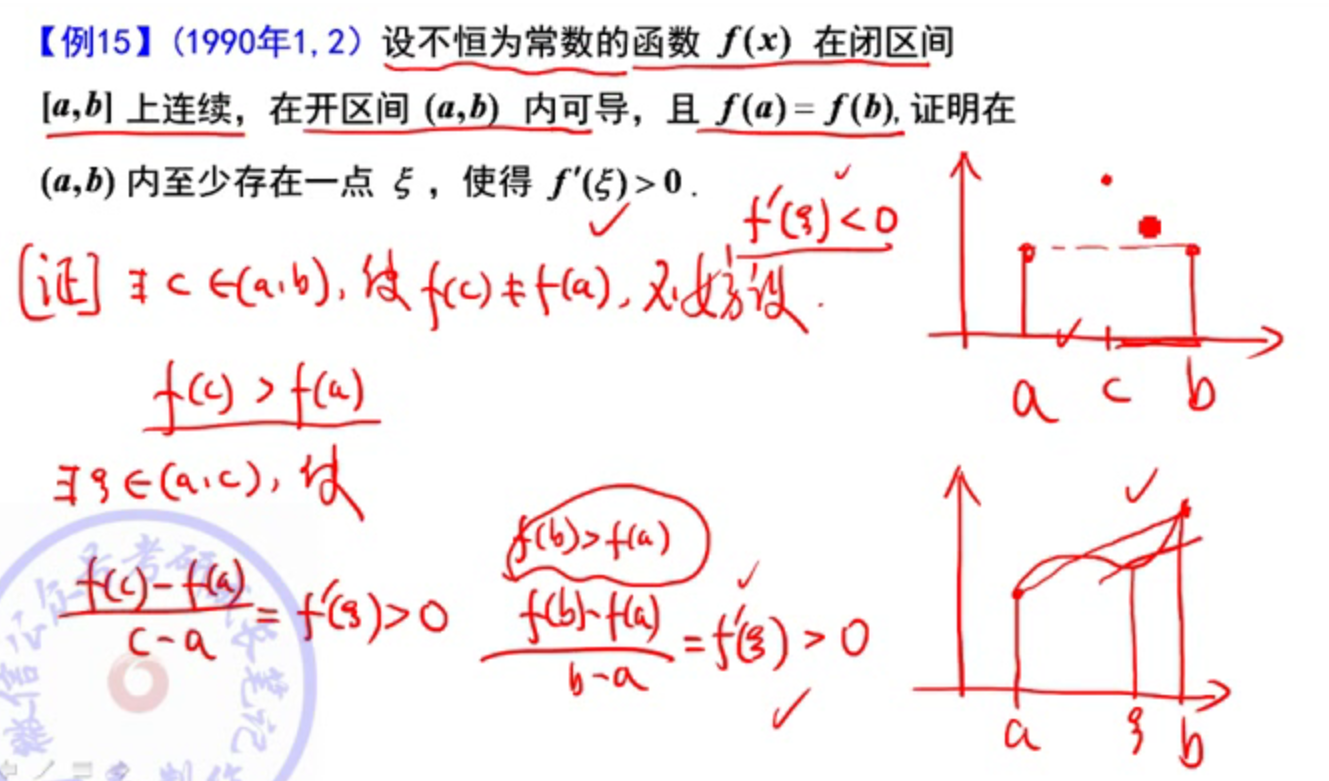 【例15】(1990年1,2) 设不恒为常数的函数 f(x) 在闭区间
[a,b] 上连续，在开区间 (a,b) 内可导，且 f(a) = f(b), 证明在
(a,b) 内至少存在一点 ξ ，使得 f′(ξ) > 0 .
f′(ξ) < 0
[证] ∃ c ∈(a,b), 使 f(c) ≠ f(a), 不妨设 .
f(c) > f(a)
∃ ξ ∈ (a,c), 使
f(c) - f(a)
c - a
= f′(ξ) > 0
f(b) > f(a)
f(b) - f(a)
b - a
= f′(ξ) > 0
a c b
a ξ b